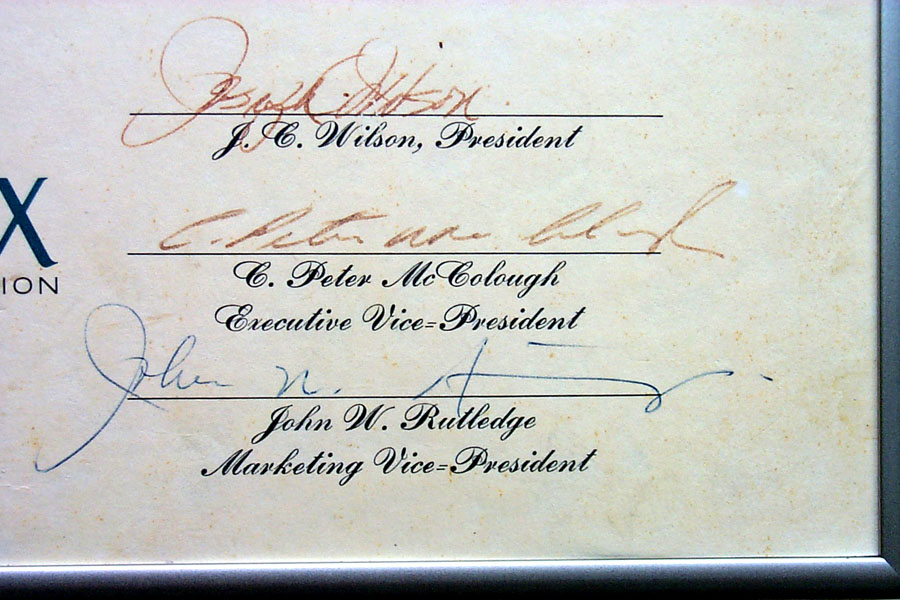 Joseph C. Wilson
J. C. Wilson, President
X
C. Peter McColough
C. Peter McColough
ION
Executive Vice=President
John W.
John W. Rutledge
Marketing Vice=President